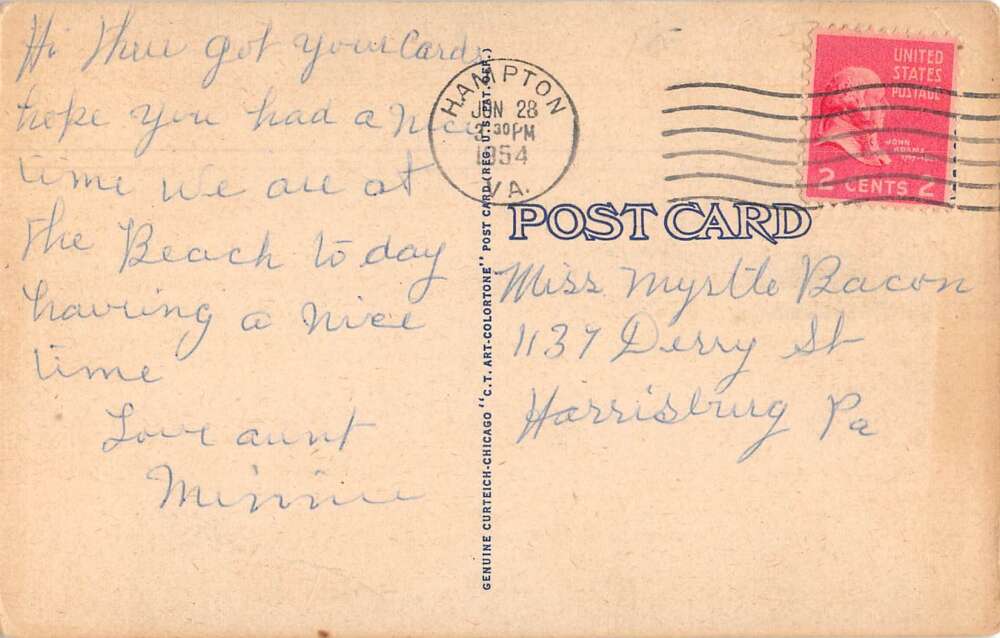 Hi There got your card
hope you had a nice
time we are at
the Beach to day
having a nice
time
Love aunt
Minnie
GENUINE CURTEICH-CHICAGO "C.T. ART-COLORTONE" POST CARD (REG. U.S. PAT. OFF.)
HAMPTON
JUN 28
30 PM
1954
VA.
UNITED
STATES
POSTAGE
JOHN
ADAMS
2 CENTS 2
POST CARD
Miss Myrtle Bacon
1137 Derry St
Harrisburg Pa